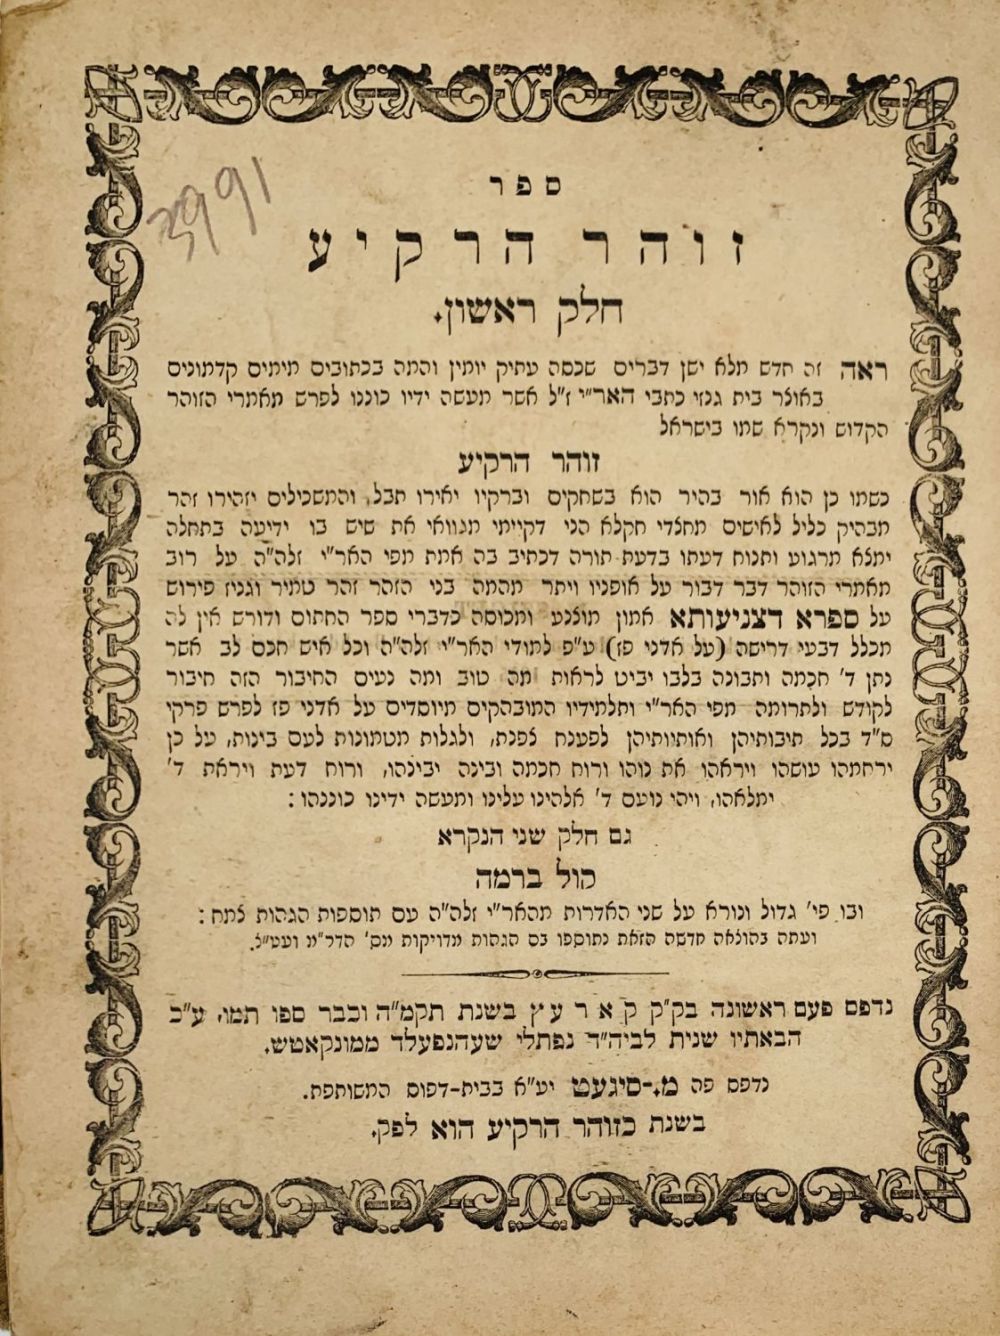 3991
ספר
זוהר הרקיע
חלק ראשון.
ראה זה חדש מלא ישן דברים שכסה עתיק יומין והמה בכתובים מימים קדמונים
באוצר בית גנזי כתבי האר"י ז"ל אשר מעשה ידיו כוננו לפרש מאמרי הזוהר
הקדוש ונקרא שמו בישראל
זוהר הרקיע
כשמו כן הוא אור בהיר הוא בשחקים וברקיו יאירו תבל, והמשכילים יזהירו זהר
מבהיק כליל לאישים מחצדי חקלא הני דקיימי מגוואי את שיש בו ידיעה בתחלה
ימצא מרגוע ותנוח דעתו בדעת תורה דכתיב בה אמת מפי האר"י זלה"ה על רוב
מאמרי הזוהר דבר דבור על אופניו ויתר מהמה בני הזהר זהר טמיר וגניז פירוש
על ספרא דצניעותא אמון מוצנע ומכוסה כדברי ספר החתום ודורש אין לה
מכלל דבעי דרישה (על אדני פז) ע"פ למודי האר"י זלה"ה וכל איש חכם לב אשר
נתן ד' חכמה ותבונה בלבו יביט לראות מה טוב ומה נעים החיבור הזה חיבור
לקודש ולתרומה מפי האר"י ותלמידיו המובהקים מיוסדים על אדני פז לפרש פרקי
ס"ד בכל תיבותיהן ואותיותיהן לפענח צפנת, ולגלות מטמונות לעם בינות, על כן
ירחמהו עושהו ויראהו את נוהו ורוח חכמה ובינה יבינהו, ורוח דעת ויראת ד'
ימלאהו, ויהי נועם ד' אלהינו עלינו ומעשה ידינו כוננהו:
גם חלק שני הנקרא
קול ברמה
ובו פי' גדול ונורא על שני האדרות מהאר"י זלה"ה עם תוספות הגהות צמח:
ועתה בהוצאה חדשה הזאת נתוספו בם הגהות מדויקות מס' הדר"מ ועט"צ.
נדפס פעם ראשונה בק"ק קארעץ בשנת תקמ"ה וכבר ספו תמו, ע"כ
הבאתיו שנית לביה"ד נפתלי שעהנפעלד ממונקאטש.
נדפס פה מ.-סיגעט יע"א בבית-דפוס המשותפת.
בשנת כזוהר הרקיע הוא לפק.